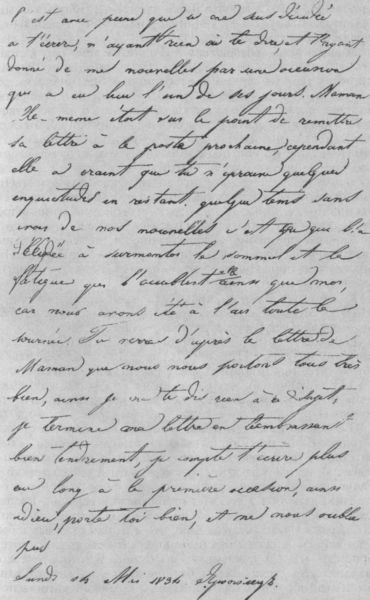 C'est avec peine que je me suis décidée
a t'écrire, n'ayant rien à te dire, et t'ayant
donné de mes nouvelles par une occasion
qui a eu lieu l'un de ses jours. Maman
Elle-même étoit sur le point de remettre
sa lettre à la poste prochaine, cependant
elle a craint que tu n'éprouve quelques
inquietudes en restant quelque tems sans
avoir de nos nouvelles c'est ce qui l'a
décidée à surmonter le sommeil et la
fatigue qui l'accablent elle ainsi que moi,
car nous avons été à l'air toute la
journée. Tu verras d'après la lettre de
Maman que nous nous portons tous très
bien, ainsi je ne te dis rien à ce sujet,
je termine ma lettre en t'embrassant
bien tendrement, je compte t'écrire plus
au long à la première occasion, ainsi
adieu, porte toi bien, et ne nous oublie
pas
Lundi 14 Mai 1834